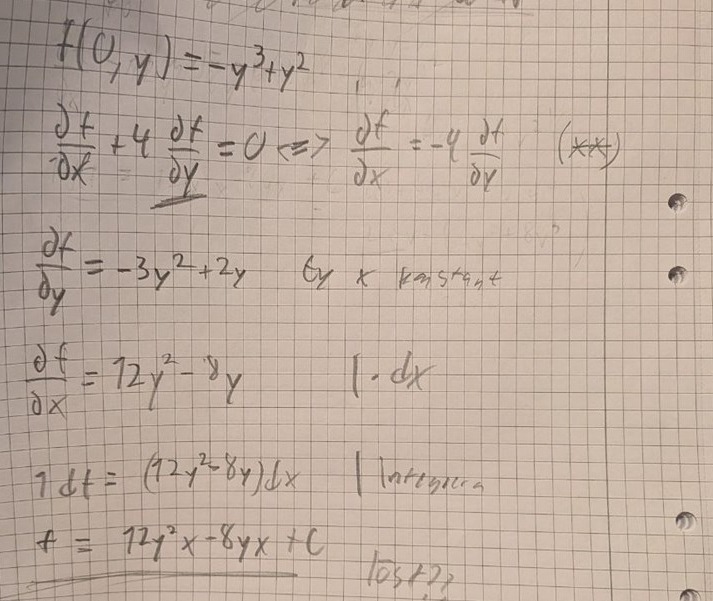 f(0, y) = -y³+y²
∂f/∂x + 4 ∂f/∂y = 0 <=> ∂f/∂x = -4 ∂f/∂y (**)
∂f/∂y = -3y²+2y ty x konstant
∂f/∂x = 12y² - 8y | · dx
1 df = (12y²-8y)dx | Integrera
f = 12y²x - 8yx + C
löst??